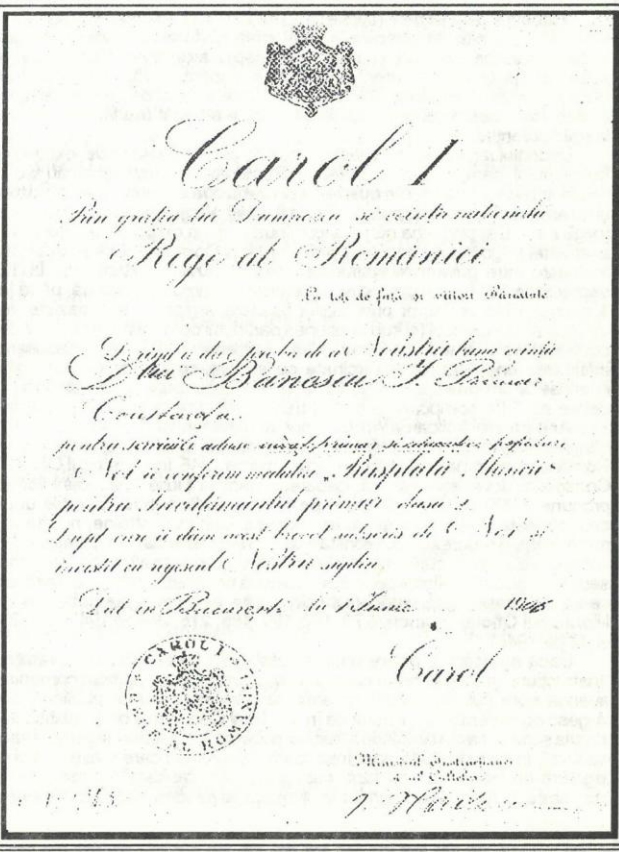 Carol I
Prin gratia lui Dumnezeu si vointa nationala
Rege al României
La toți de față și viitori Sănătate
Dorind a da o proba de a Noastra buna vointa
D lui Banescu I. Primar
Constanta
pentru serviciile aduse primar
Noi ii conferim medalia „Rasplata Muncii"
pentru Invatamantul primar clasa
Drept care ii dam acest brevet subscris de Noi si
investit cu regescul Nostru sigiliu
Dat in Bucuresti la 1 Iunie 1906
Carol
CAROL I REGE AL ROMÂNIEI
Ministrul Instrucțiunei
și al Cultelor